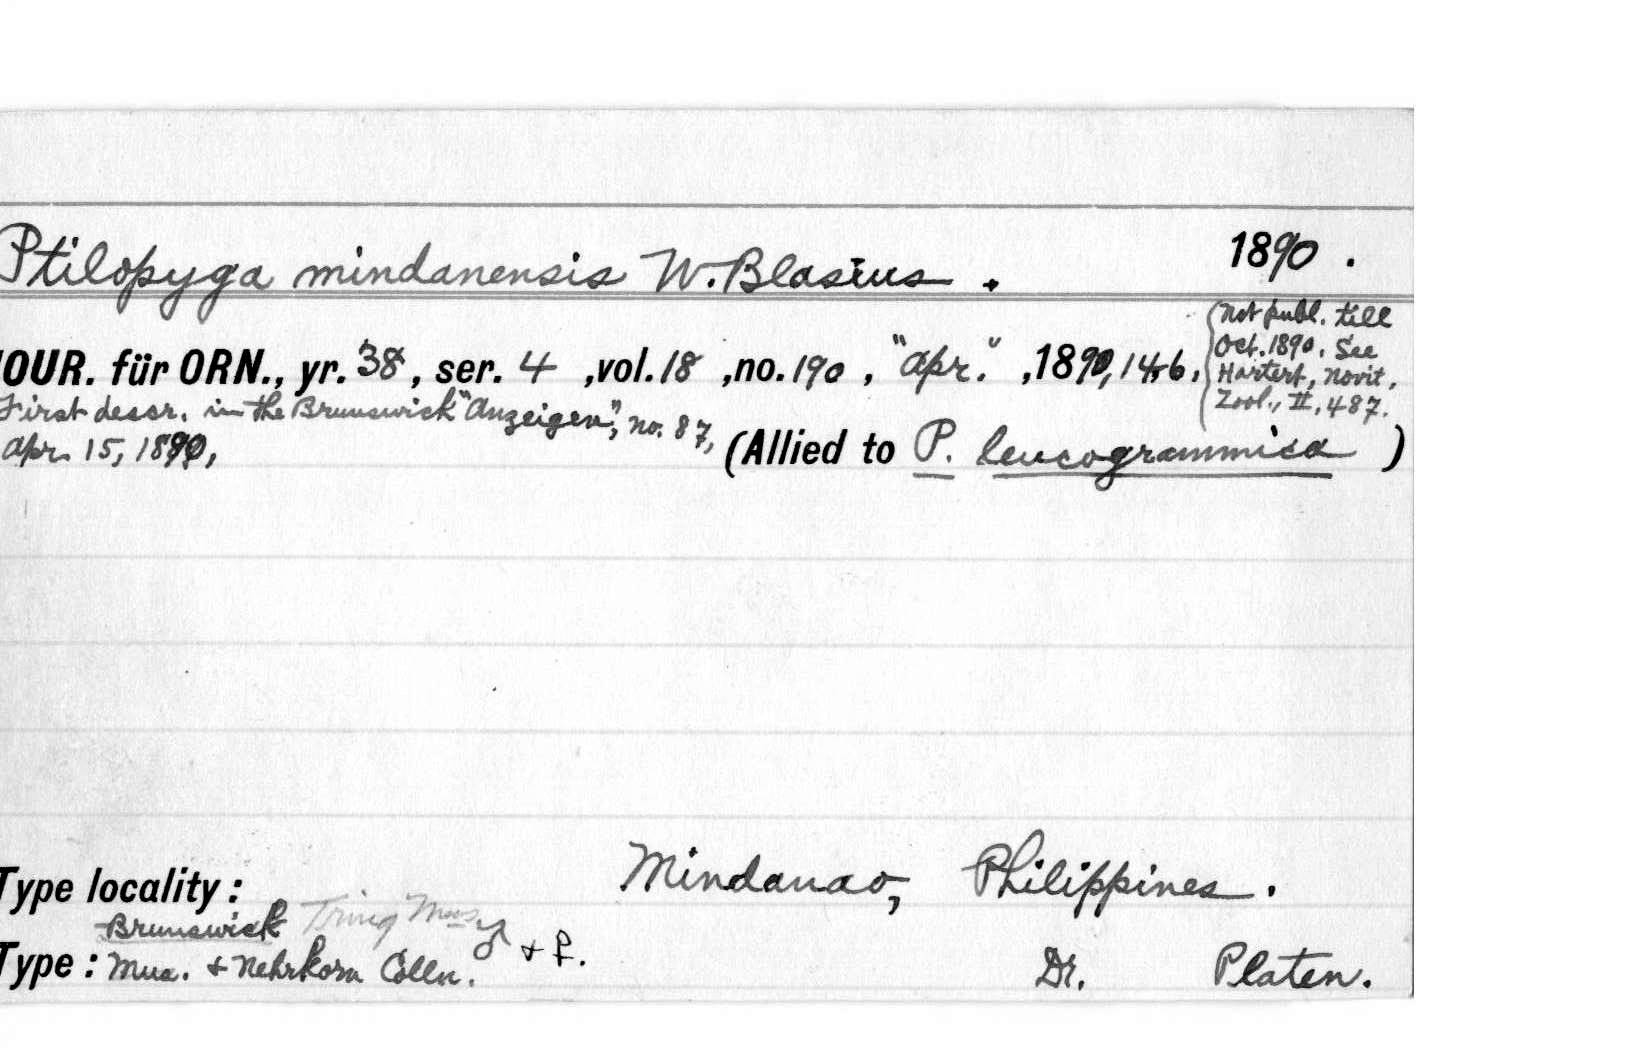 Ptilopyga mindanensis W. Blasius . 1890 .
(Not publ. till
Oct. 1890. See
Hartert, Novit.
Zool., II, 487.
JOUR. für ORN., yr. 38, ser. 4 ,vol. 18 ,no. 190 , "Apr." ,1890, 146,
First descr. in the Brunswick "Anzeigen", no. 87,
Apr. 15, 1890,
(Allied to P. leucogrammica )
Type locality : Mindanao, Philippines .
Brunswick Tring Mus.
Type : Mus. + Nehrkorn Colln. ♂ + ♀. Dr. Platen.